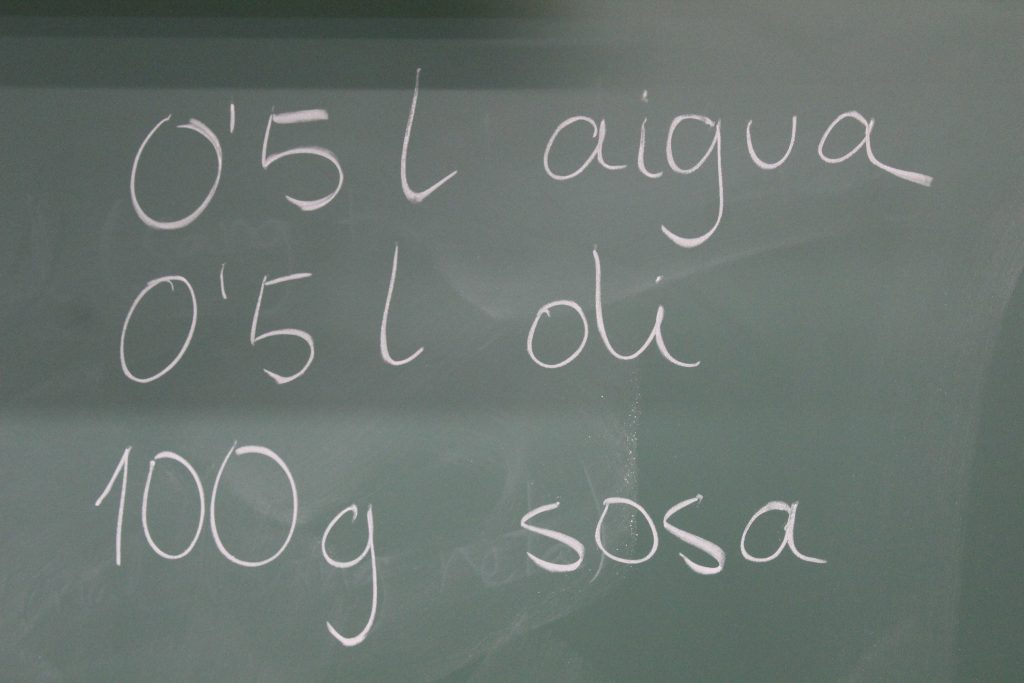 0'5 l aigua
0'5 l oli
100g sosa